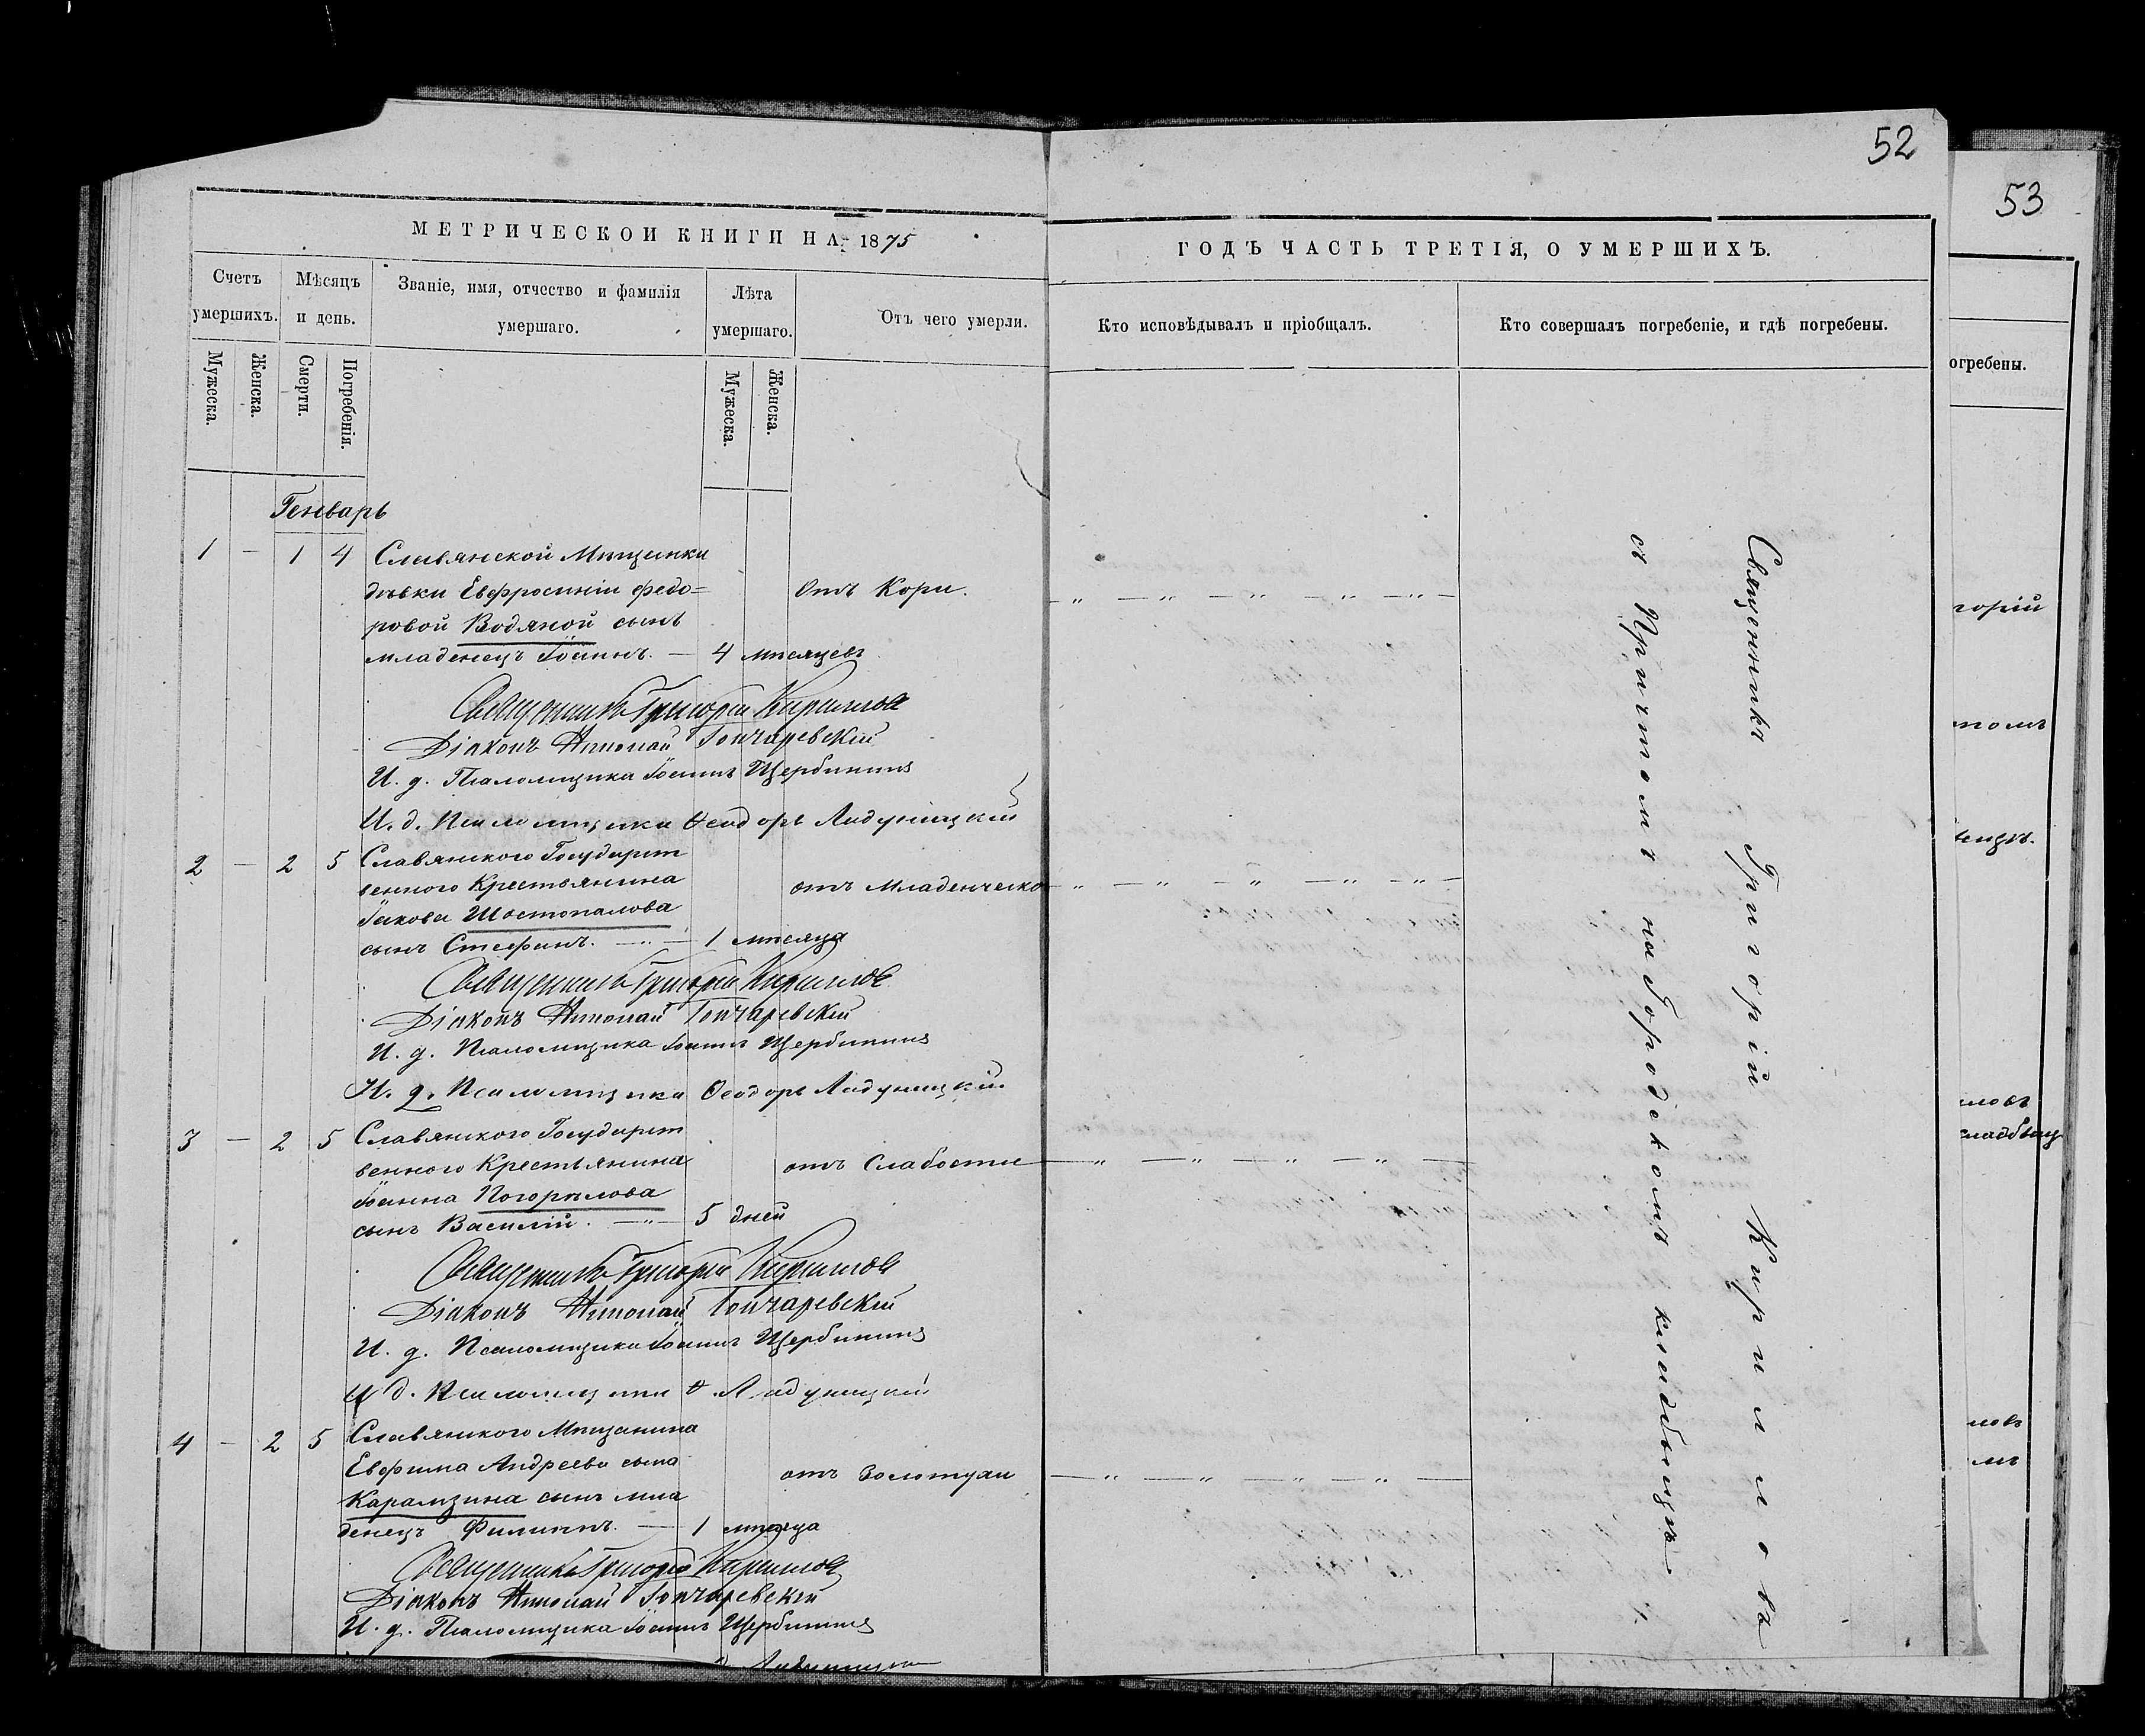 52
53
МЕТРИЧЕСКОЙ КНИГИ НА 1875
ГОДЪ ЧАСТЬ ТРЕТІЯ, О УМЕРШИХЪ.
Счетъ умершихъ.
Мѣсяцъ и день.
Званіе, имя, отчество и фамилія умершаго.
Лѣта умершаго.
Отъ чего умерли.
Кто исповѣдывалъ и пріобщалъ.
Кто совершалъ погребеніе, и гдѣ погребены.
огребены.
Мужеска.
Женска.
Смерти.
Погребенія.
Мужеска.
Женска.
Генварь
1 — 1 4 Славянской Мѣщанки
дѣвки Евфросиніи Федо=
ровой Водяной сынъ
младенецъ Іоаннъ. — 4 мѣсяцевъ
Отъ Кори.
Священникъ Григорій Кириловъ
Діаконъ Николай Гончаревскій
И. д. Псаломщика Іоаннъ Щербининъ
И. д. Псаломщика Ѳеодоръ Ладуницкій
2 — 2 5 Славянского Государст
венного Крестьянина
Іакова Шостопалова
сынъ Стефанъ. — 1 мѣсяца
отъ Младенческо
Священникъ Григорій Кириловъ
Діаконъ Николай Гончаревскій
И. д. Псаломщика Іоаннъ Щербининъ
И. д. Псаломщика Ѳеодоръ Ладуницкій
3 — 2 5 Славянского Государст
венного Крестьянина
Іоанна Погорѣлова
сынъ Василій. — 5 дней
отъ Слабости
Священникъ Григорій Кириловъ
Діаконъ Николай Гончаревскій
И. д. Псаломщика Іоаннъ Щербининъ
И д. Псаломщика Ѳ. Ладуницкій
4 — 2 5 Славянского Мѣщанина
Евфима Андреева сына
Карамзина сынъ мла
денецъ Филиппъ. — 1 мѣсяца
отъ Золотухи
Священникъ Григорій Кириловъ
Діаконъ Николай Гончаревскій
И. д. Псаломщика Іоаннъ Щербининъ
Священникъ Григорій Кириловъ
съ Причтомъ на Городскомъ кладбищѣ
горій
томъ
ловъ
кладбищ
ловъ